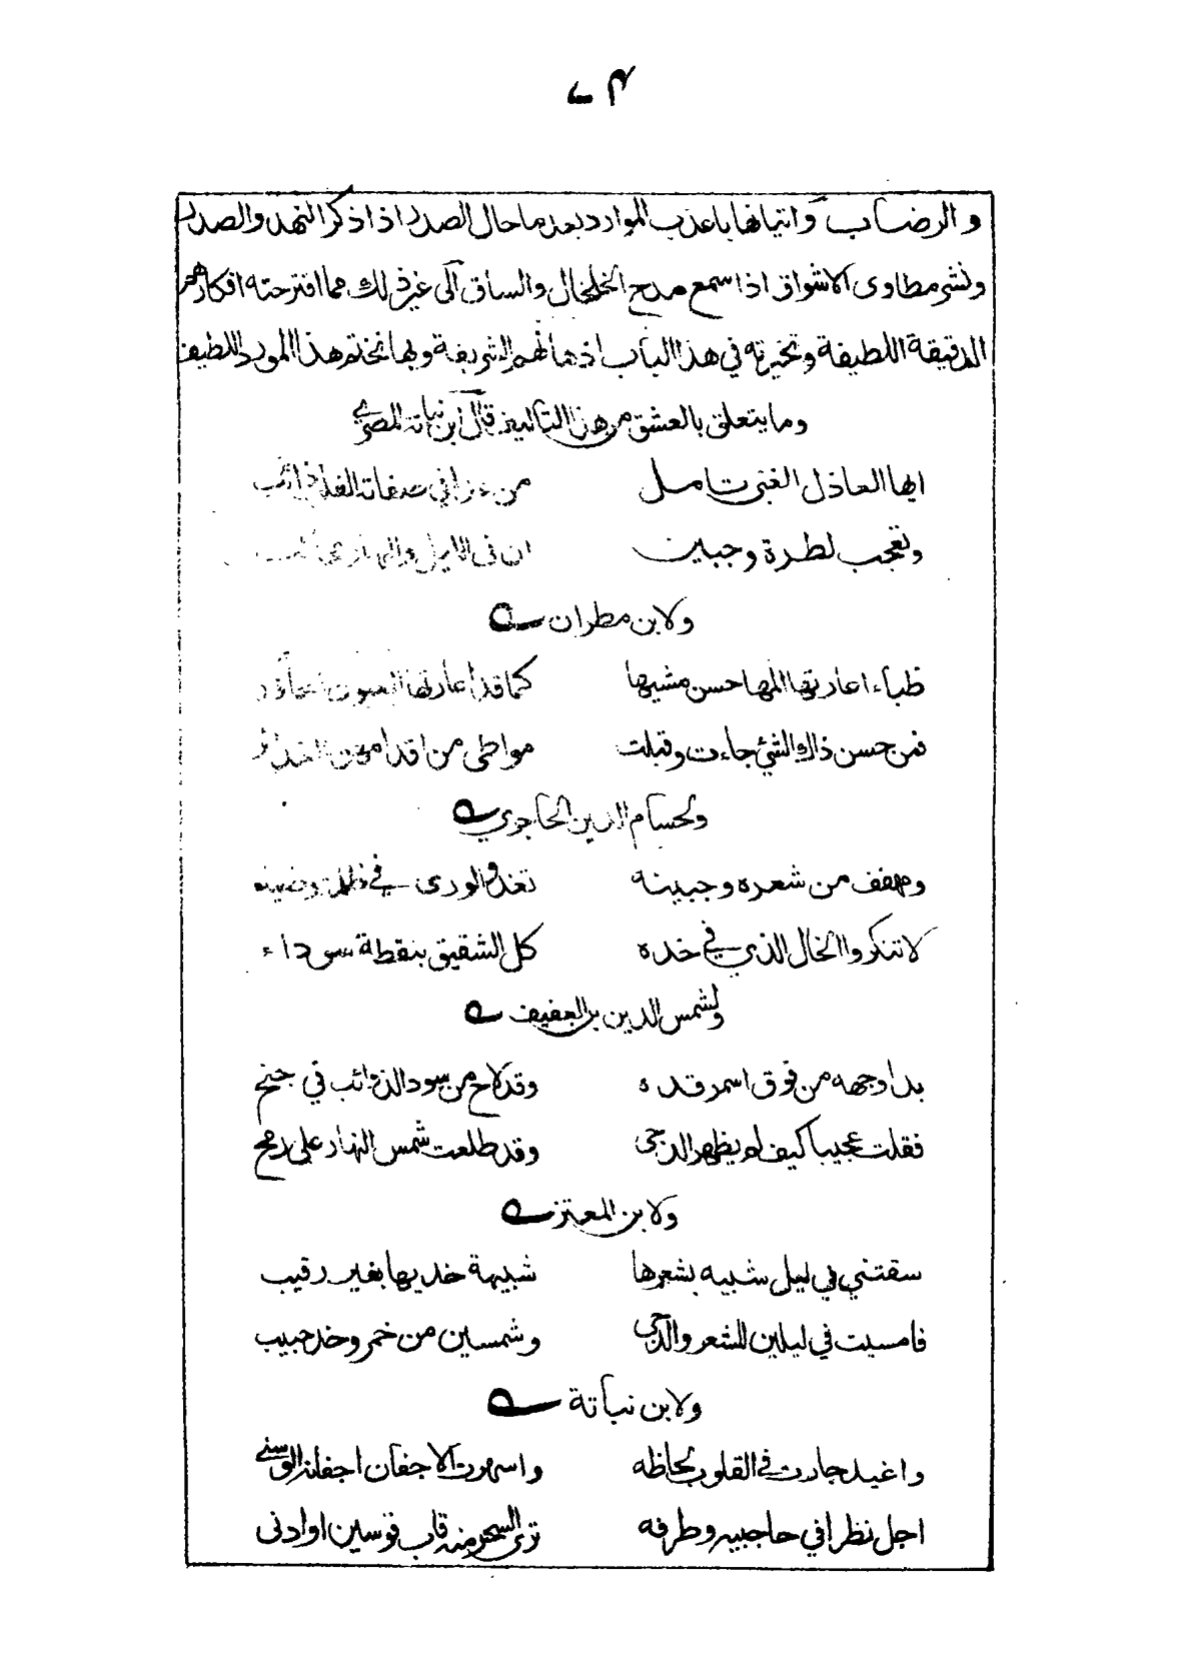 والرضاب واتيانها باعذب الموارد بعد ما حال الصدر اذا ذكر النهد والصدر
ونشر مطاوى الاشواق اذا سمع مدح الخلخال والساق الى غير ذلك مما اقترحته افكارهم
الدقيقة اللطيفة وتخيرته في هذا الباب اذهانهم الشريفة وبها نختم هذا المورد اللطيف
وما يتعلق بالعشق من هذا التاليف قال ابن نباتة المصري
ايها العاذل الغبى تامل من غدا في صفاته القلب ذائب
وتعجب لطرة وجبين ان فى الليل والنهار
ولابن مطران
ظباء اعارتها المها حسن مشيها كما قد اعارتها العيون الجآذر
فمن حسن ذاك المشي جاءت وقبلت مواطى من اقدامهن
ولحسام الدين الحاجري
ومهفف من شعره وجبينه تغدو الورى في ظلمة وضياء
لا تنكروا الخال الذي في خده كل الشقيق بنقطة سوداء
ولشمس الدين بن العفيف
بدا وجهه من فوق اسمر قده وقد لاح من سود الذوائب في جنح
فقلت عجيبا كيف لم يظهر الدجى وقد طلعت شمس النهار على رمح
ولابن المعتز
سقتني في ليل شبيه بشعرها شبيهة خديها بغير رقيب
فامسيت في ليلين للشعر والدجى وشمسين من خمر وخد حبيب
ولابن نباتة
واغيد جارت في القلوب لحاظه واسهرت الاجفان اجفانه الوسنى
اجل نظرا في حاجبيه وطرفه ترى السحر منه قاب قوسين او ادنى